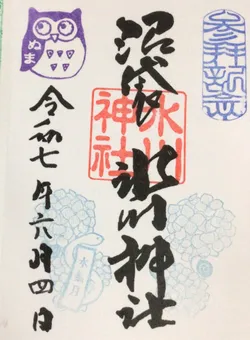 参拝記念
沼袋
氷川神社
氷川
神社
令和七年六月四日
ぬま
水無月